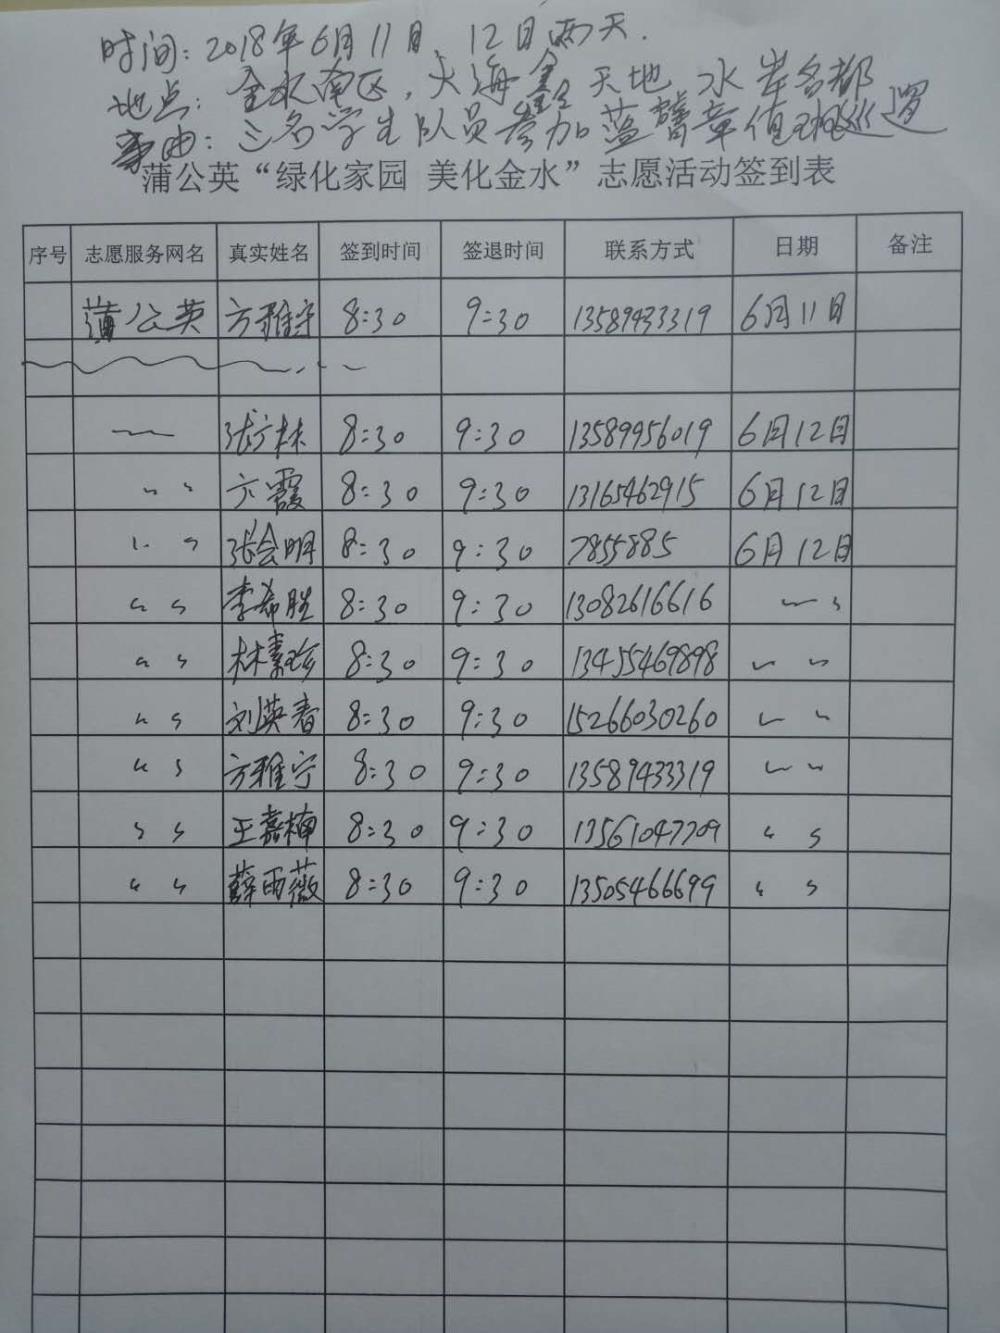 时间：2018年6月11日、12日两天.
地点：金水南区，大海金天地 水岸名都
事由：三名学生队员参加蓝馨章值班巡逻
蒲公英“绿化家园 美化金水”志愿活动签到表
序号 志愿服务网名 真实姓名 签到时间 签退时间 联系方式 日期 备注
蒲公英 方雅宁 8:30 9:30 13589433319 6月11日
张广林 8:30 9:30 13589956019 6月12日
方霞 8:30 9:30 13165462915 6月12日
张会明 8:30 9:30 7855885 6月12日
李希胜 8:30 9:30 13082616616
林素珍 8:30 9:30 13455469898
刘英春 8:30 9:30 15266030260
方雅宁 8:30 9:30 13589433319
王嘉楠 8:30 9:30 13561047709
薛雨薇 8:30 9:30 13505466699